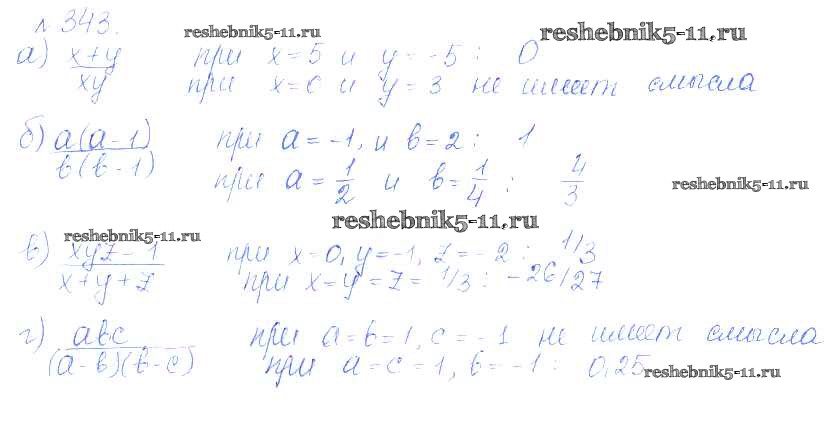 № 343. reshebnik5-11.ru reshebnik5-11.ru
а) x+y/xy при x=5 и y=-5: 0
при x=0 и y=3 не имеет смысла
б) a(a-1)/b(b-1) при a=-1, и b=2: 1
при a=1/2 и b=1/4: 4/3 reshebnik5-11.ru
reshebnik5-11.ru
reshebnik5-11.ru
в) xyz-1/x+y+z при x=0, y=-1, z=-2: 1/3
при x=y=z=1/3: -26/27
г) abc/(a-b)(b-c) при a=b=1, c=-1 не имеет смысла
при a=c=1, b=-1: 0,25 reshebnik5-11.ru